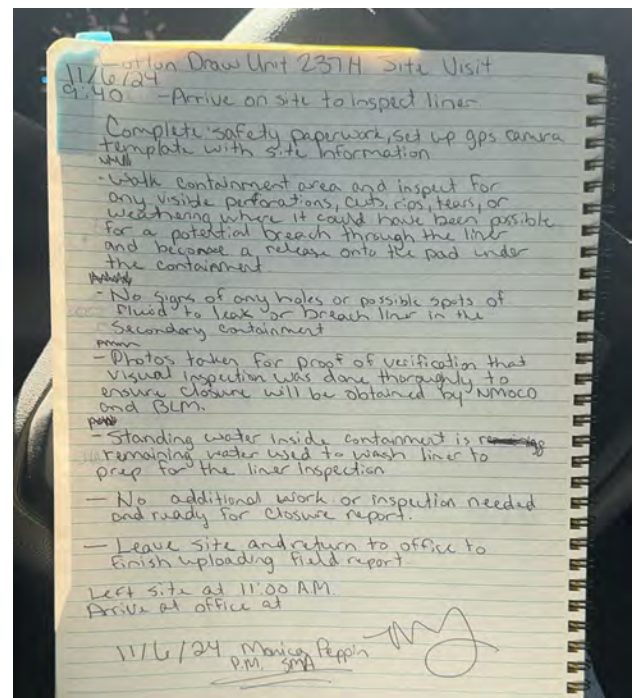 Cotton Draw Unit 237H Site Visit
11/6/24
9:40 - Arrive on site to inspect liner
Complete safety paperwork, set up gps camra
template with site information
- Walk containment area and inspect for
any visible perforations, cuts, rips, tears, or
weathering where it could have been possible
for a potential breach through the liner
and become a release onto the pad under
the containment
- No signs of any holes or possible spots of
fluid to leak or breach liner in the
Secondary containment
- Photos taken for proof of verification that
visual inspection was done thoroughly to
ensure closure will be obtained by NMOCD
and BLM.
- Standing water inside containment is
remaining water used to wash liner to
prep for the liner inspection
- No additional work or inspection needed
and ready for closure report.
- Leave site and return to office to
finish uploading field report
Left site at 11:00 A.M.
Arrive at office at
11/6/24 Monica Peppin
P.M. SMA